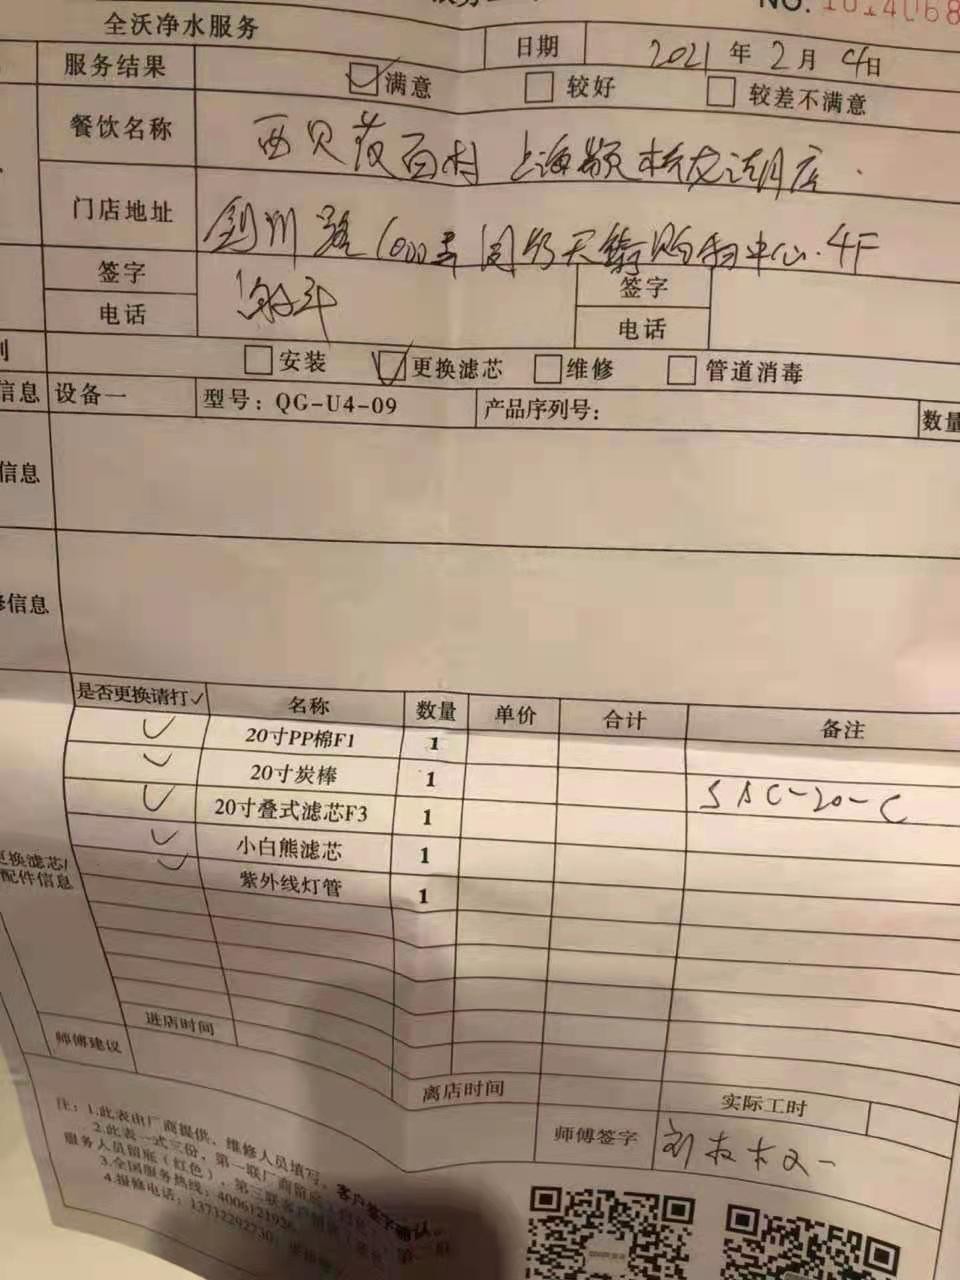 NO. 1014068
全沃净水服务
日期 2021年2月4日
服务结果 满意 较好 较差不满意
餐饮名称 西贝莜面村上海颛桥龙湖店
门店地址 剑川路1000号 4F
签字 签字
电话 电话
安装 更换滤芯 维修 管道消毒
信息 设备一 型号：QG-U4-09 产品序列号： 数量
信息
信息
是否更换请打✓ 名称 数量 单价 合计 备注
✓ 20寸PP棉F1 1
✓ 20寸炭棒 1 SAC-20-C
✓ 20寸叠式滤芯F3 1
✓ 小白熊滤芯 1
✓ 紫外线灯管 1
更换滤芯/
配件信息
进店时间
师傅建议
离店时间 实际工时
师傅签字
注：1.此表由厂商提供，维修人员填写，客户签字确认。
2.此表一式三份，第一联厂商留底
服务人员留底（红色），第三联客户
3.全国服务热线：4006121926
4.报修电话：13732292730